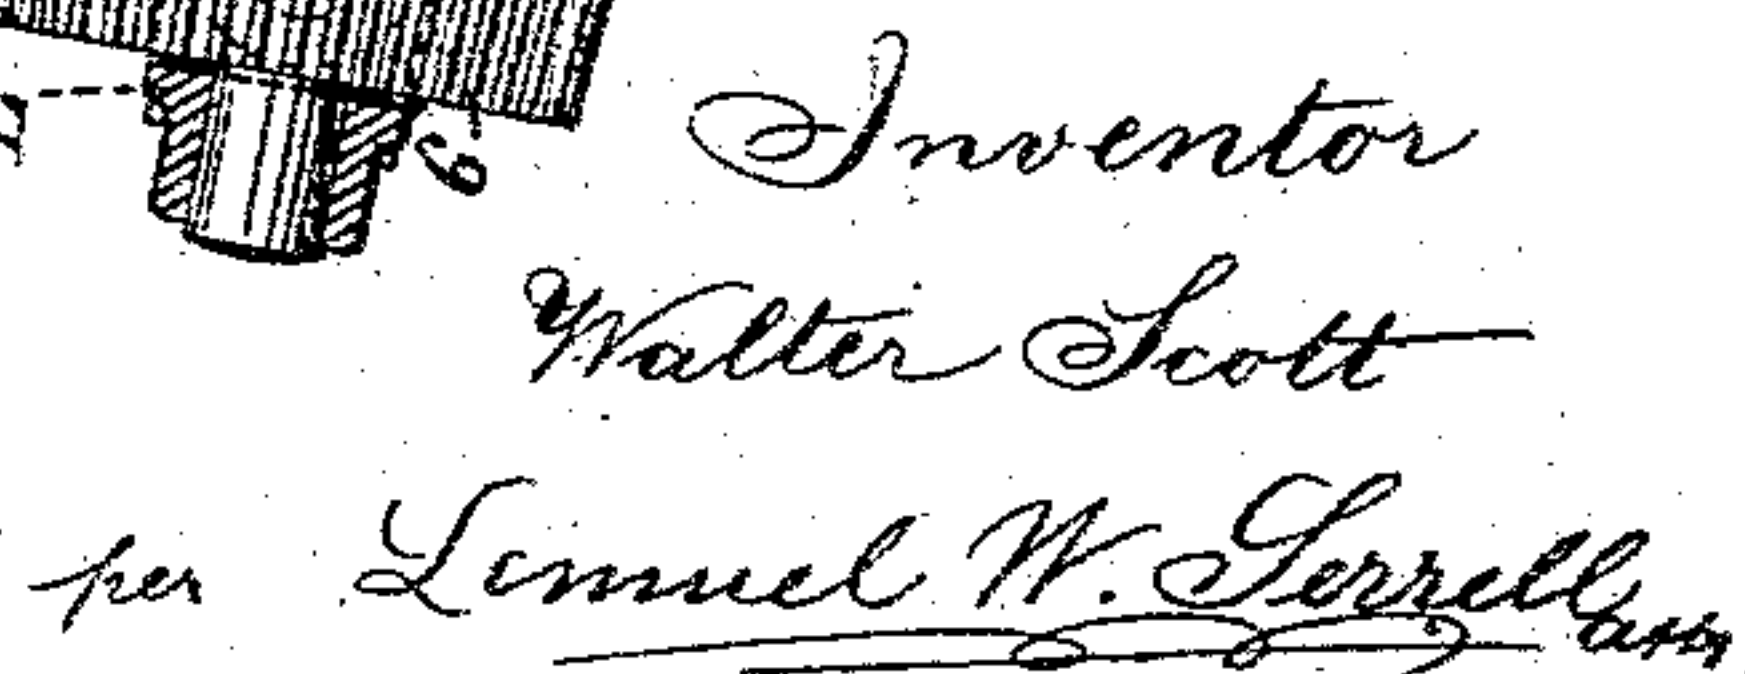 6
Inventor
Walter Scott
per Lemuel W. Serrell atty